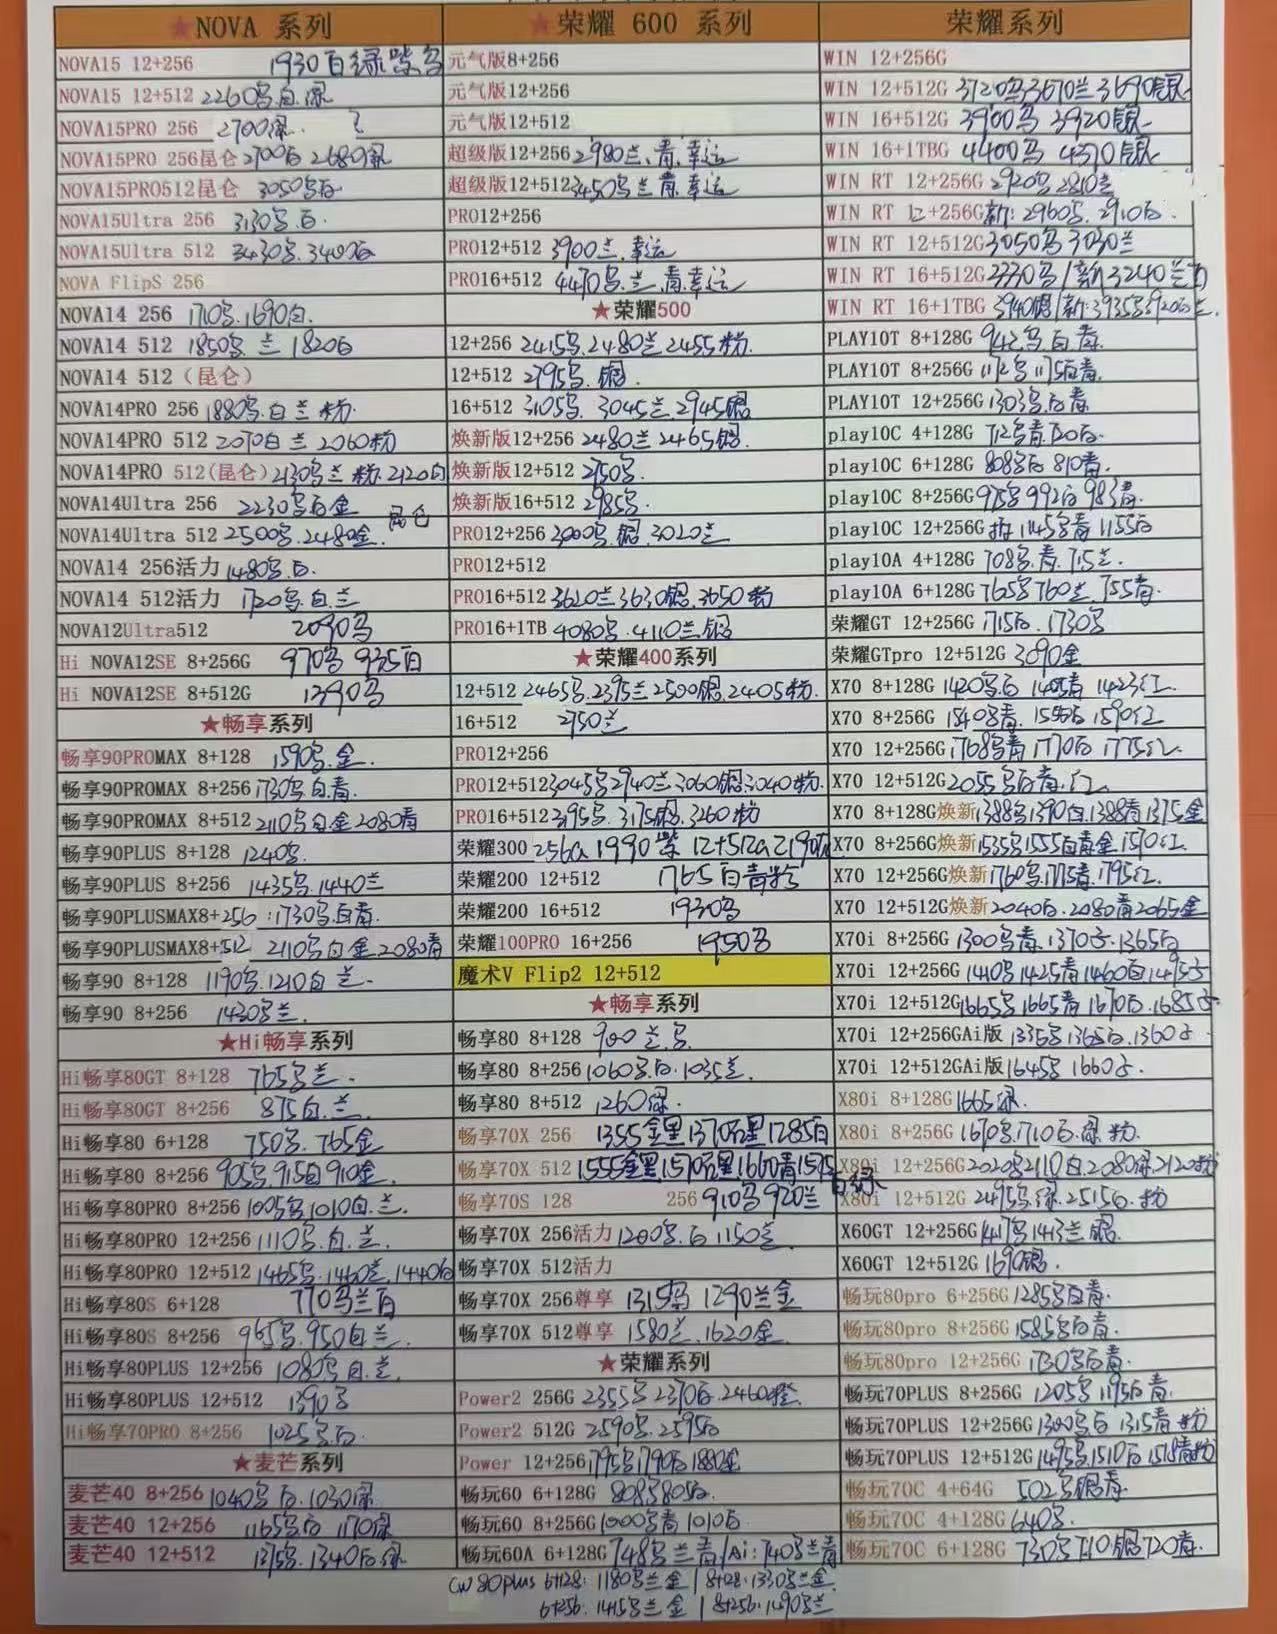 ★NOVA 系列
NOVA15 12+256 1930白绿紫乌
NOVA15 12+512 2260乌.白.绿
NOVA15PRO 256 2700绿.
NOVA15PRO 256昆仑 2700白 2680绿
NOVA15PRO512昆仑 3050乌白
NOVA15Ultra 256 3130乌.白.
NOVA15Ultra 512 3430乌.3400白
NOVA FlipS 256
NOVA14 256 1710乌.1690白.
NOVA14 512 1850乌.兰 1820白
NOVA14 512（昆仑）
NOVA14PRO 256 1880乌.白兰粉.
NOVA14PRO 512 2070白兰 2060粉
NOVA14PRO 512(昆仑) 2130乌兰粉.2120白
NOVA14Ultra 256 2230乌白金
NOVA14Ultra 512 2500乌.2480金. 昆仑
NOVA14 256活力 1480乌.白.
NOVA14 512活力 1720乌.白.兰
NOVA12Ultra512 2090乌
Hi NOVA12SE 8+256G 970乌 935白
Hi NOVA12SE 8+512G 1290乌
★畅享系列
畅享90PROMAX 8+128 1590乌.金.
畅享90PROMAX 8+256 1730乌白.青.
畅享90PROMAX 8+512 2110乌白金 2080青
畅享90PLUS 8+128 1240乌.
畅享90PLUS 8+256 1435乌.1440兰
畅享90PLUSMAX8+256 :1730乌.白青.
畅享90PLUSMAX8+512 2110乌白金.2080青
畅享90 8+128 1190乌.1210白兰.
畅享90 8+256 1430乌兰.
★Hi畅享系列
Hi畅享80GT 8+128 765乌兰.
Hi畅享80GT 8+256 875白.兰.
Hi畅享80 6+128 750乌.765金
Hi畅享80 8+256 905乌.915白910金.
Hi畅享80PRO 8+256 1005乌1010白.兰.
Hi畅享80PRO 12+256 1110乌.白.兰.
Hi畅享80PRO 12+512 1465乌.1460兰.1440白
Hi畅享80S 6+128 770乌兰白
Hi畅享80S 8+256 965乌.950白兰.
Hi畅享80PLUS 12+256 1080乌.白.兰.
Hi畅享80PLUS 12+512 1390乌
Hi畅享70PRO 8+256 1025乌白.
★麦芒系列
麦芒40 8+256 1040乌白.1030绿.
麦芒40 12+256 1165乌白 1170绿
麦芒40 12+512 1375乌.1340白.绿
★荣耀 600 系列
元气版8+256
元气版12+256
元气版12+512
超级版12+256 2980兰.青.幸运
超级版12+512 3450乌兰青.幸运
PRO12+256
PRO12+512 3900兰.幸运
PRO16+512 4470乌.兰.青.幸运
★荣耀500
12+256 2415乌.2480兰2455粉.
12+512 2795乌.银.
16+512 3105乌. 3045兰2945银
焕新版12+256 2480兰2465银.
焕新版12+512 2750乌.
焕新版16+512 2985乌.
PRO12+256 3000乌.银.3020兰
PRO12+512
PRO16+512 3620兰3630银.3650粉
PRO16+1TB 4080乌.4110兰.银
★荣耀400系列
12+512 2465乌.2395兰2500银.2405粉.
16+512 2750兰
PRO12+256
PRO12+512 3045乌2940兰.3060银.3040粉.
PRO16+512 3195乌.3175银.3260粉
荣耀300 256G 1990紫 12+512G 2190
荣耀200 12+512 1765白青粉
荣耀200 16+512 1930乌
荣耀100PRO 16+256 1950乌
魔术V Flip2 12+512
★畅享系列
畅享80 8+128 900兰.乌.
畅享80 8+256 1060乌.白.1035兰.
畅享80 8+512 1260绿.
畅享70X 256 1355金黑1370 1285白
畅享70X 512 1555金黑1570 1660青
畅享70S 128 256 910乌920兰
畅享70X 256活力 1200乌.白1150兰.
畅享70X 512活力
畅享70X 256尊享 1315乌 1290兰金
畅享70X 512尊享 1580兰.1620金.
★荣耀系列
Power2 256G 2355乌2370白.2460橙.
Power2 512G 2590乌.2595白
Power 12+256 1795乌1790白1880金
畅玩60 6+128G 808乌805白.
畅玩60 8+256G 1000乌青1010白
畅玩60A 6+128G 748乌兰青/Ai:740乌兰青
荣耀系列
WIN 12+256G
WIN 12+512G 3720乌3670兰3690银
WIN 16+512G 3900乌 3920银
WIN 16+1TBG 4400乌 4370银
WIN RT 12+256G 2920乌 2810兰
WIN RT 12+256G新:2960乌.2910白.
WIN RT 12+512G 3050乌3030兰
WIN RT 16+512G 3330乌/新3240兰白
WIN RT 16+1TBG 3940银/新:3935乌3920白兰.
PLAY10T 8+128G 942乌白青.
PLAY10T 8+256G 1172乌1175白青.
PLAY10T 12+256G 1303乌.白青
play10C 4+128G 712乌青720白.
play10C 6+128G 808乌白810青.
play10C 8+256G 975乌992白983青.
play10C 12+256G 1145乌青1155白
play10A 4+128G 708乌.青.715兰.
play10A 6+128G 765乌760兰 755青.
荣耀GT 12+256G 1715白.1730乌
荣耀GTpro 12+512G 3090金
X70 8+128G 1420乌白1405青1423红.
X70 8+256G 1540乌青.1555白1590红
X70 12+256G 1768乌青1770白1775红.
X70 12+512G 2055乌白青.红.
X70 8+128G焕新1388乌1390白.1388青1375金
X70 8+256G焕新1535乌1555白青金1570红.
X70 12+256G焕新1760乌1775青.1795红.
X70 12+512G焕新2040白.2080青2065金
X70i 8+256G 1300乌青.1370 1365白
X70i 12+256G 1410乌1425青1460白1495
X70i 12+512G 1665乌1665青1670白.1685
X70i 12+256GAi版 1335乌1365白.1360
X70i 12+512GAi版 1645乌1660
X80i 8+128G 1665绿.
X80i 8+256G 1670乌1710白.绿粉.
X80i 12+256G 2020乌2110白.2080绿.2120粉
X80i 12+512G 2495乌.绿.2515白.粉
X60GT 12+256G 1417乌1413兰银.
X60GT 12+512G 1690银.
畅玩80pro 6+256G 1285乌白青.
畅玩80pro 8+256G 1585乌白青.
畅玩80pro 12+256G 1730乌白青.
畅玩70PLUS 8+256G 1205乌1195白青.
畅玩70PLUS 12+256G 1300乌白1315青粉
畅玩70PLUS 12+512G 1495乌1510白1518青粉
畅玩70C 4+64G 502乌银青
畅玩70C 4+128G 640乌.
畅玩70C 6+128G 730乌710银720青.
CW80plus 6+128:1180乌兰金/8+128:1330乌兰金.
6+256:1415乌兰金/8+256:1490乌兰